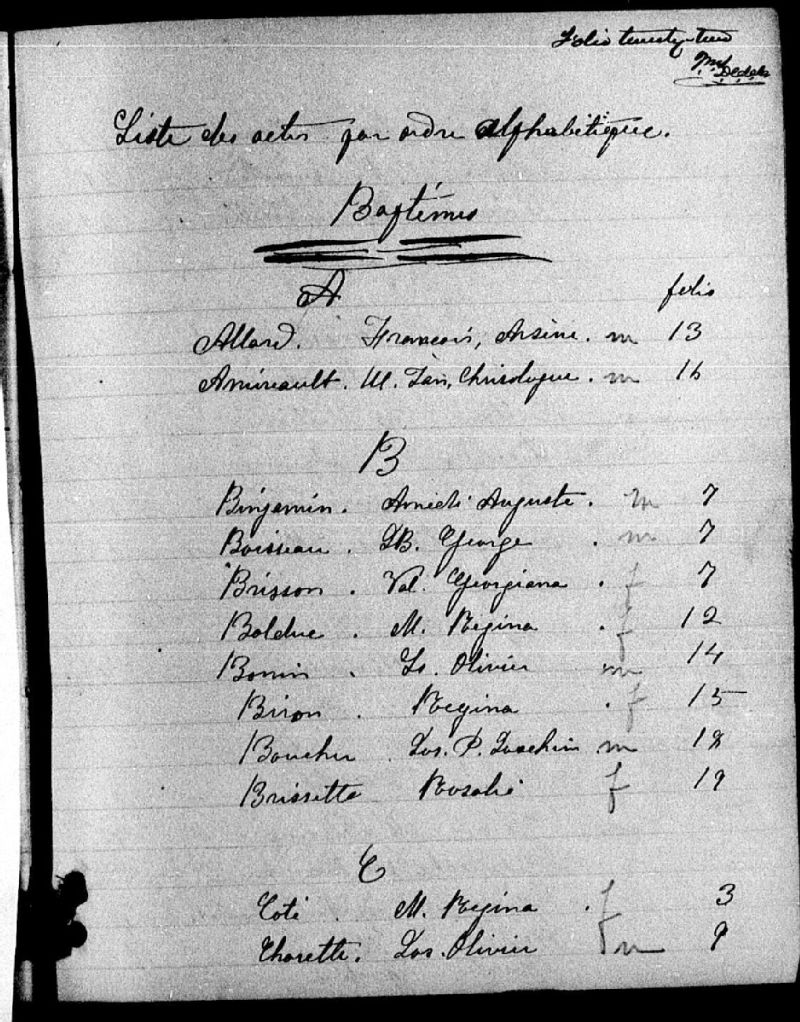 Folio twenty-two
Liste des actes par ordre alphabétique.
Baptêmes
A folio
Allard. François, Arsène. m 13
Amireault. M. Fais, Chrisologue. m 16
B
Binjamin. Amédé Auguste. m 7
Boisseau. JB. George . m 7
Brisson. Val. Georgiana . f 7
Bolduc. M. Regina . f 12
Bonin. Ls. Olivier m 14
Biron. Regina . f 15
Boucher Jos. P. Joachim m 18
Brissette Rosalie f 19
C
Coté. M. Regina . f 3
Chorette. Jos. Olivier f m 9